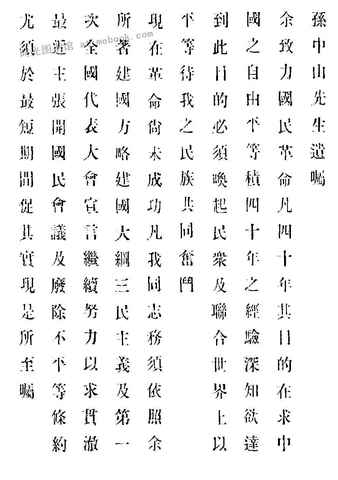 孫中山先生遺囑
余致力國民革命凡四十年其目的在求中
國之自由平等積四十年之經驗深知欲達
到此目的必須喚起民衆及聯合世界上以
平等待我之民族共同奮鬥
現在革命尚未成功凡我同志務須依照余
所著建國方略建國大綱三民主義及第一
次全國代表大會宣言繼續努力以求貫澈
最近主張開國民會議及廢除不平等條約
尤須於最短期間促其實現是所至囑